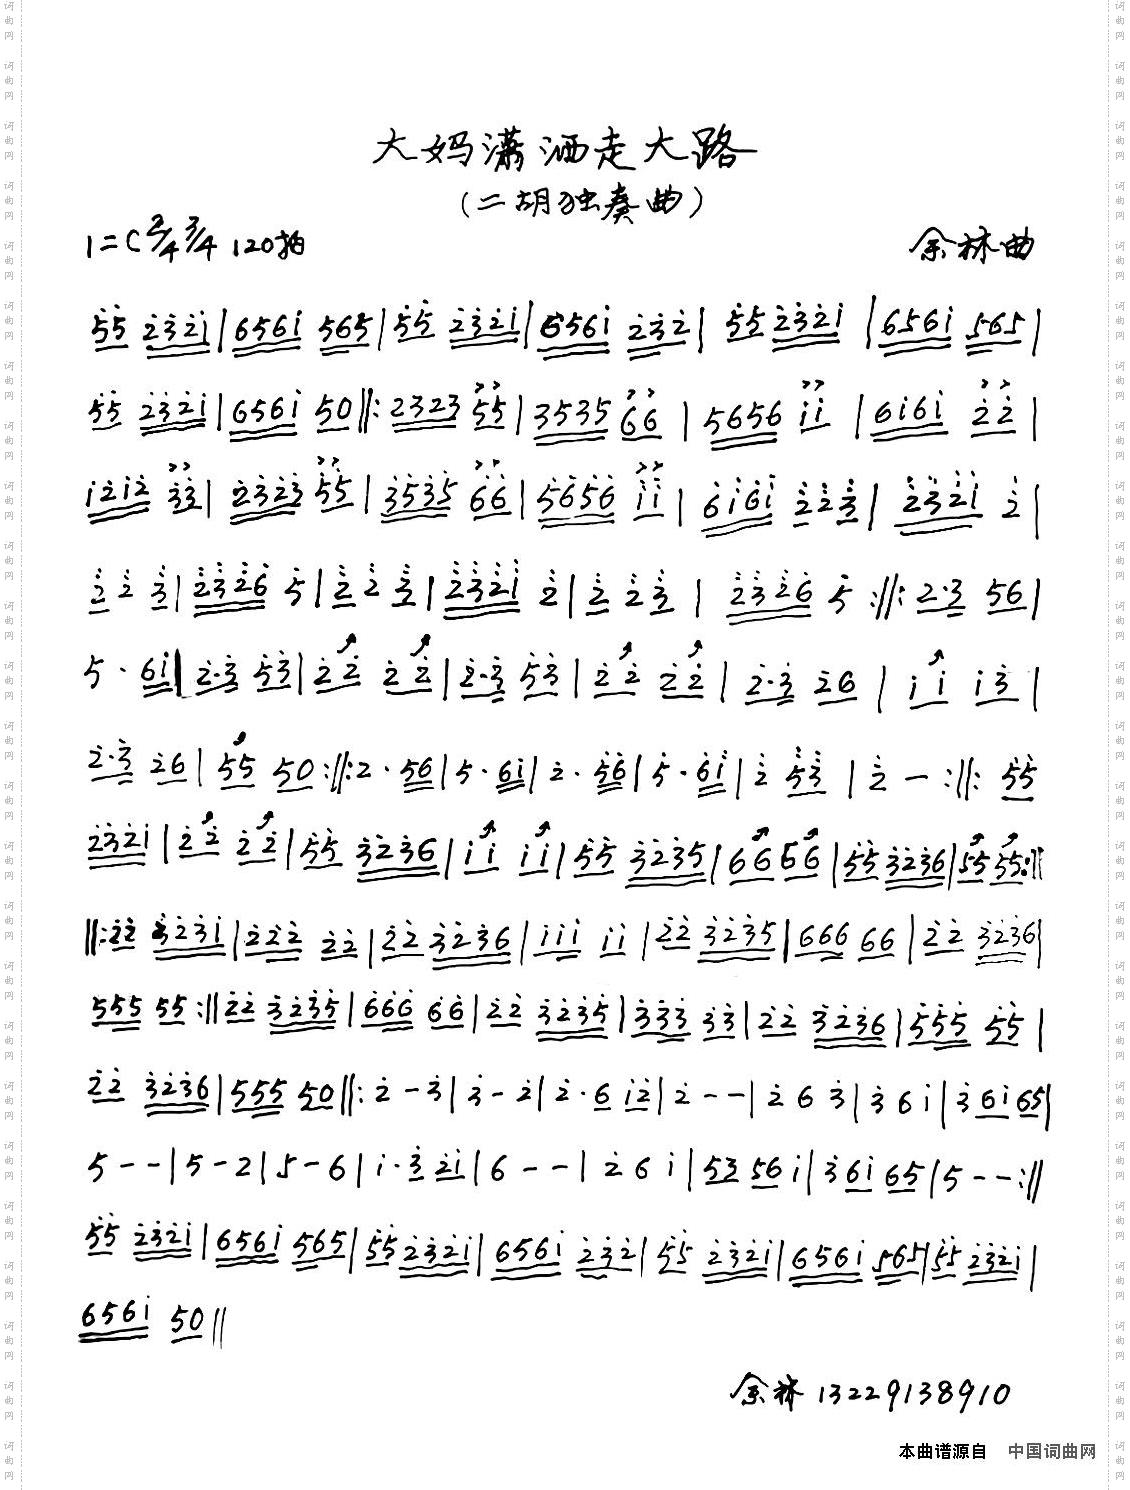 大妈潇洒走大路
(二胡独奏曲)
1=C 2/4 3/4 120拍 余林曲
5̇5̇ 2̇3̇2̇1̇|6561̇ 565|5̇5̇ 2̇3̇2̇1̇|6561̇ 2̇3̇2̇|5̇5̇ 2̇3̇2̇1̇|6561̇ 565|
5̇5̇ 2̇3̇2̇1̇|6561̇ 50‖:2323 55|3535 66|5656 1̇1̇|61̇61̇ 2̇2̇|
1̇2̇1̇2̇ 3̇3̇|2̇3̇2̇3̇ 5̇5̇|3̇5̇3̇5̇ 6̇6̇|5̇6̇5̇6̇ 1̇1̇|
5·61̇|2̇·3̇ 5̇3̇|2̇2̇ 2̇2̇|2̇·3̇ 5̇3̇|2̇2̇ 2̇2̇|2̇·3̇ 2̇6|1̇1̇ 1̇3̇|
2̇·3̇ 2̇6|55 50:‖:2·56|5·61̇|
2̇3̇2̇1̇|2̇2̇ 2̇2̇|5̇5̇ 3̇2̇3̇6|1̇1̇ 1̇1̇|5̇5̇ 3̇2̇3̇5|66 66|5̇5̇ 3̇2̇3̇6|55 55:‖
‖:2̇2̇ 3̇2̇3̇1̇|2̇2̇2̇ 2̇2̇|2̇2̇ 3̇2̇3̇6|1̇1̇1̇ 1̇1̇|2̇2̇ 3̇2̇3̇5|666 66|2̇2̇ 3̇2̇3̇6|
555 55:‖2̇2̇ 3̇2̇3̇5̇|6̇6̇6̇ 6̇6̇|2̇2̇ 3̇2̇3̇5̇|3̇3̇3̇ 3̇3̇|2̇2̇ 3̇2̇3̇6|5̇5̇5̇ 5̇5̇|
2̇2̇ 3̇2̇3̇6|555 50‖:2̇-3̇|3̇-2̇|2̇·6 1̇2̇|2̇--|2̇63̇|3̇61̇|3̇ 61̇ 65|
5--|5-2|5-6|1̇·3̇ 2̇1̇|6--|2̇61̇|53 56 1̇|3̇ 61̇ 65|5--:‖
5̇5̇ 2̇3̇2̇1̇|6561̇ 565|5̇5̇ 2̇3̇2̇1̇|6561̇ 2̇3̇2̇|5̇5̇ 2̇3̇2̇1̇|6561̇ 565|5̇5̇ 2̇3̇2̇1̇|
6561̇ 50‖
余林 13229138910
本曲谱源自 中国词曲网